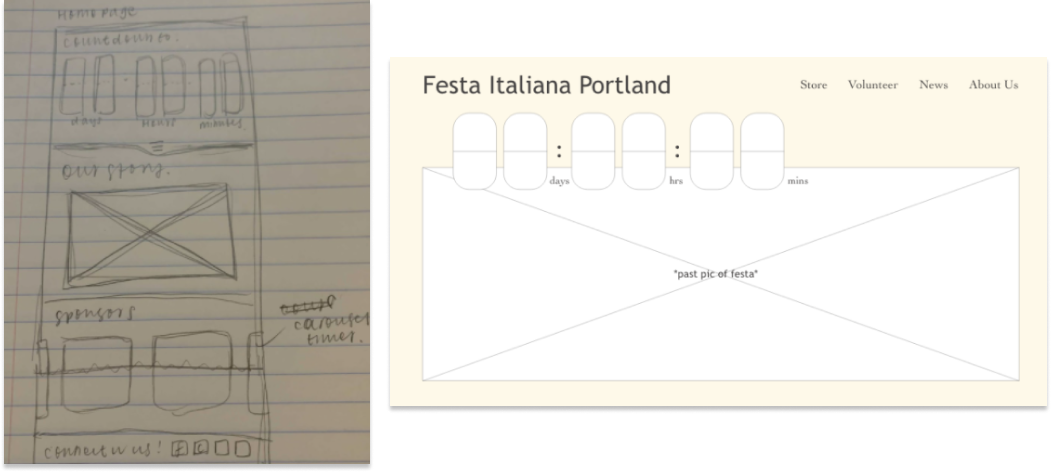 Home page
Countdown to.
days Hours minutes.
Our story.
Sponsors
carousel
timer.
connect w us!
Festa Italiana Portland
Store Volunteer News About Us
: :
days hrs mins
*past pic of festa*